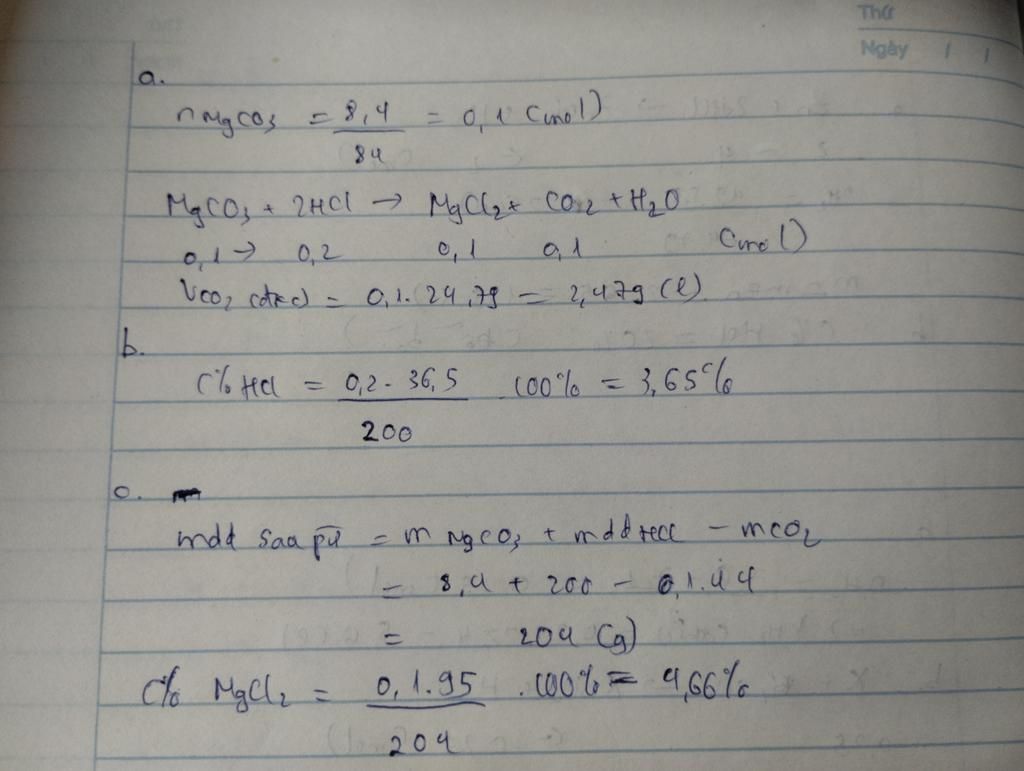 Thứ
Ngày / /
a.
nMgCO3 = 8,4 / 84 = 0,1 (mol)
MgCO3 + 2HCl → MgCl2 + CO2 + H2O
0,1 → 0,2 0,1 0,1 (mol)
VCO2 (đkc) = 0,1. 24,79 = 2,479 (l)
b.
C% HCl = 0,2 . 36,5 / 200 .100% = 3,65%
c.
mdd sau pứ = m MgCO3 + mdd HCl - mCO2
= 8,4 + 200 - 0,1.44
= 204 (g)
C% MgCl2 = 0,1.95 / 204 .100% = 4,66%